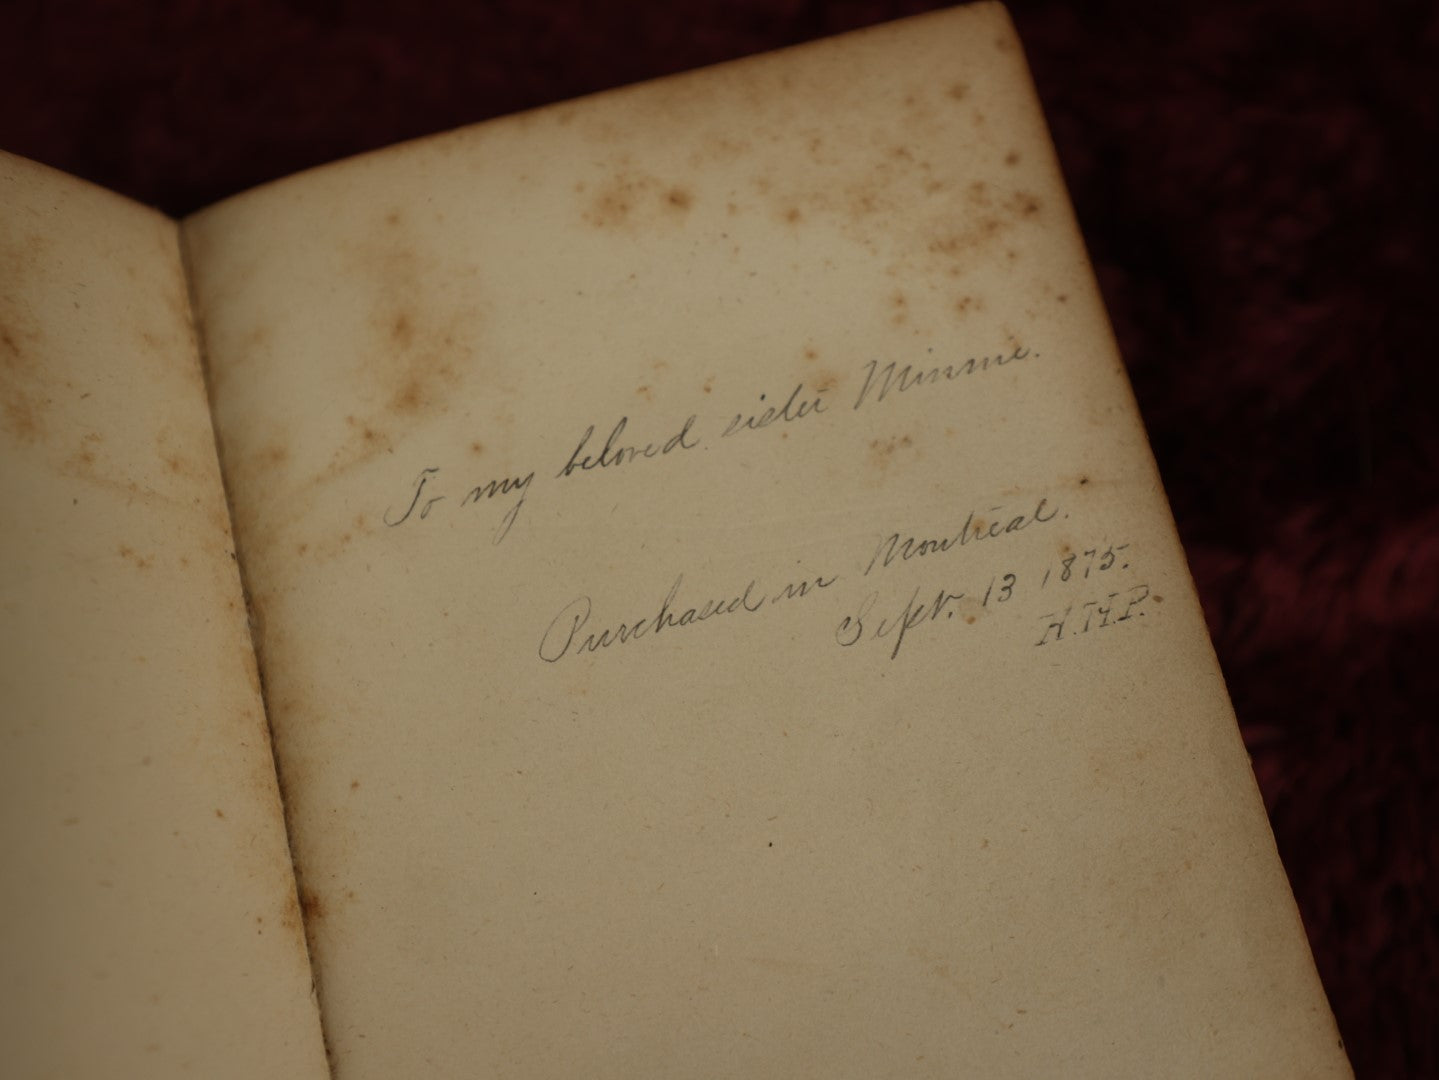 To my beloved sister Minnie.
Purchased in Montreal.
Sept. 13 1875.
H.H.P.